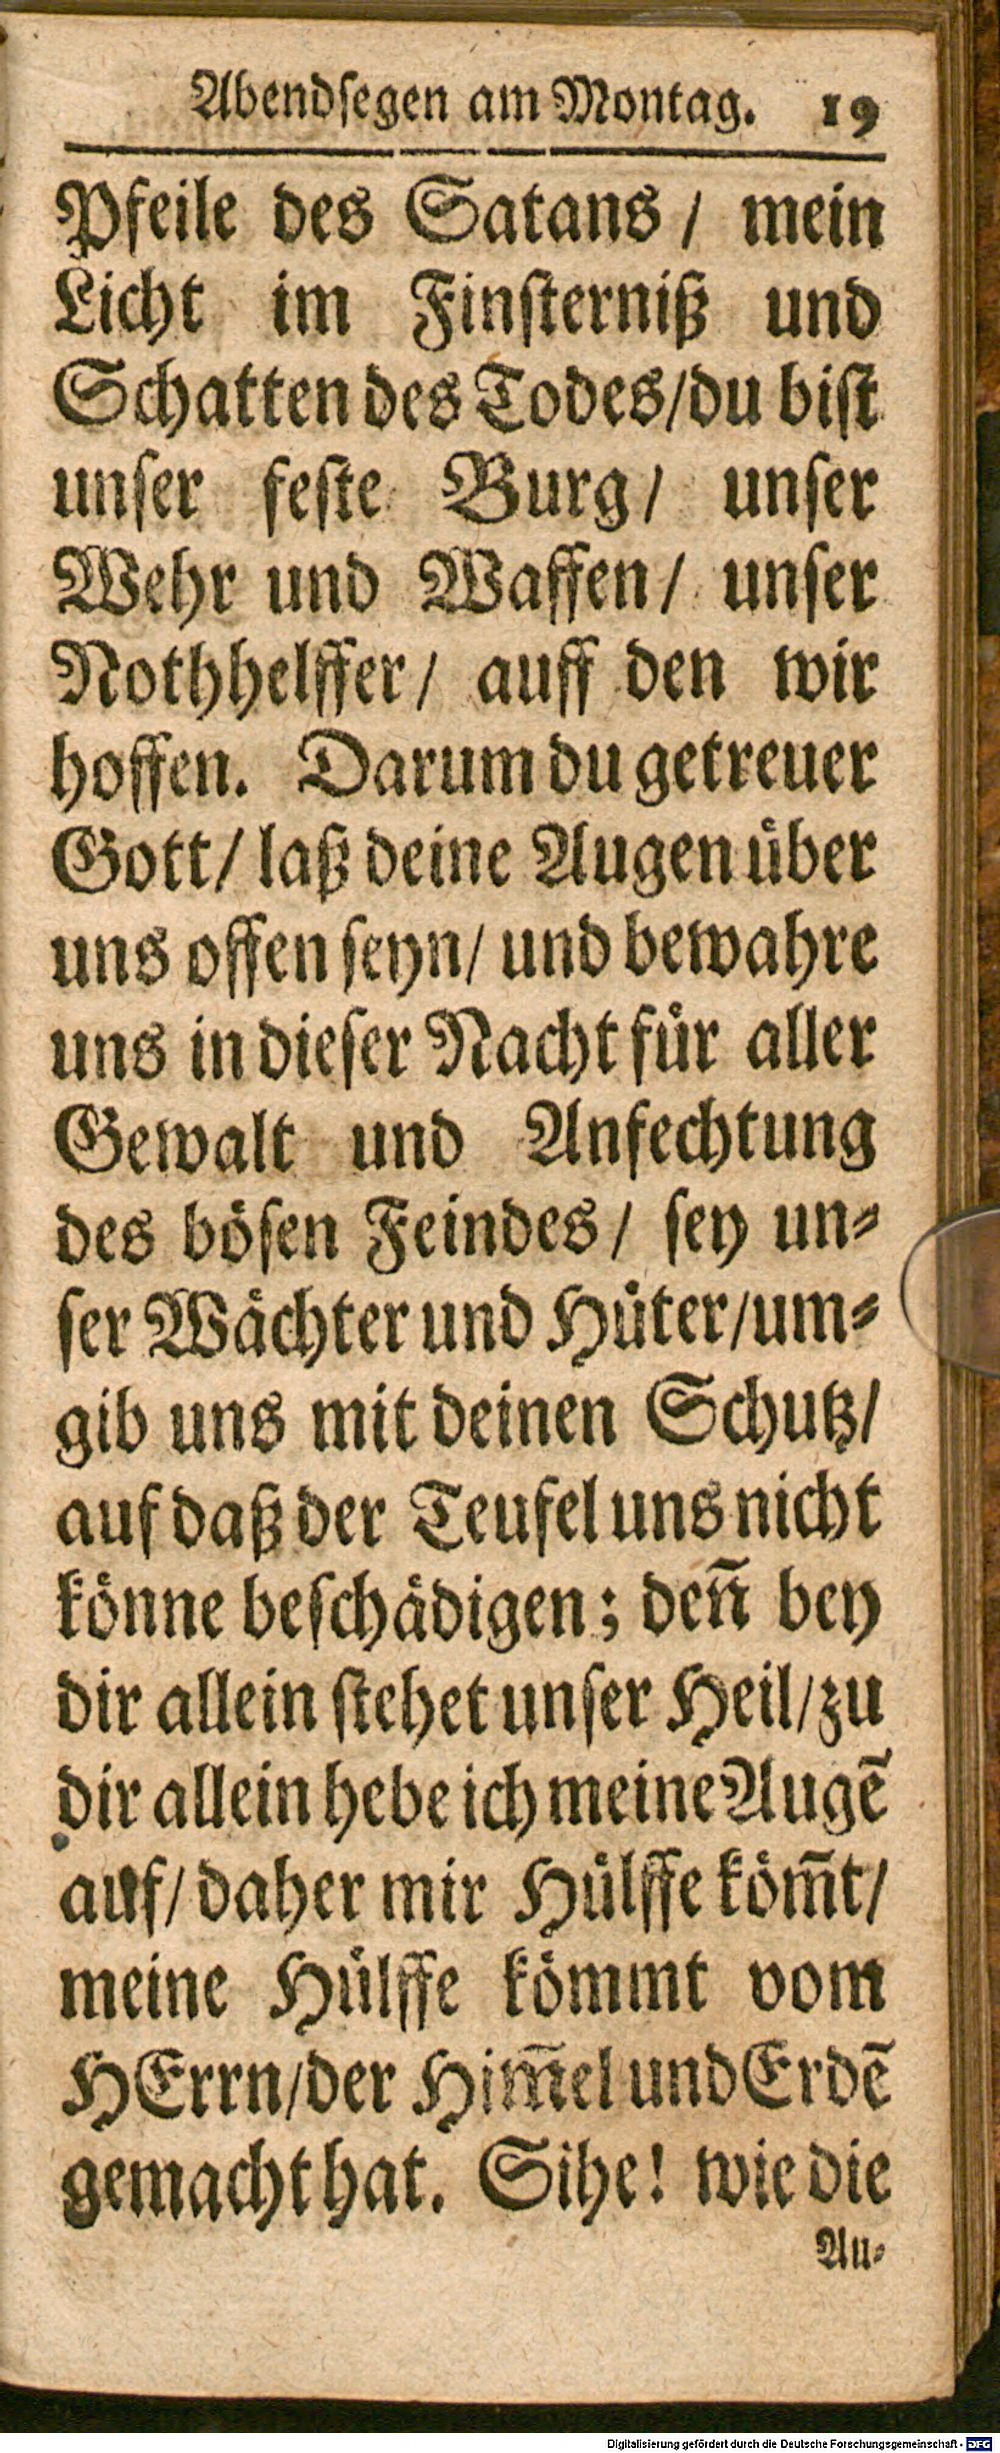 Abendſegen am Montag. 19
Pfeile des Satans / mein
Licht im Finſterniß und
Schatten des Todes/du biſt
unſer feſte Burg/ unſer
Wehr und Waffen/ unſer
Nothhelffer/ auff den wir
hoffen. Darum du getreuer
Gott/ laß deine Augen uͤber
uns offen ſeyn/ und bewahre
uns in dieſer Nacht fuͤr aller
Gewalt und Anfechtung
des boͤſen Feindes/ ſey un⸗
ſer Waͤchter und Huͤter/um⸗
gib uns mit deinen Schutz/
auf daß der Teufel uns nicht
koͤnne beſchaͤdigen; deñ bey
dir allein ſtehet unſer Heil/zu
dir allein hebe ich meine Augē
auf/ daher mir Huͤlffe koͤm̃t/
meine Huͤlffe koͤmmt vom
HErrn/der Him̃el und Erdē
gemacht hat. Sihe! wie die
Au⸗
Digitalisierung gefördert durch die Deutsche Forschungsgemeinschaft - DFG